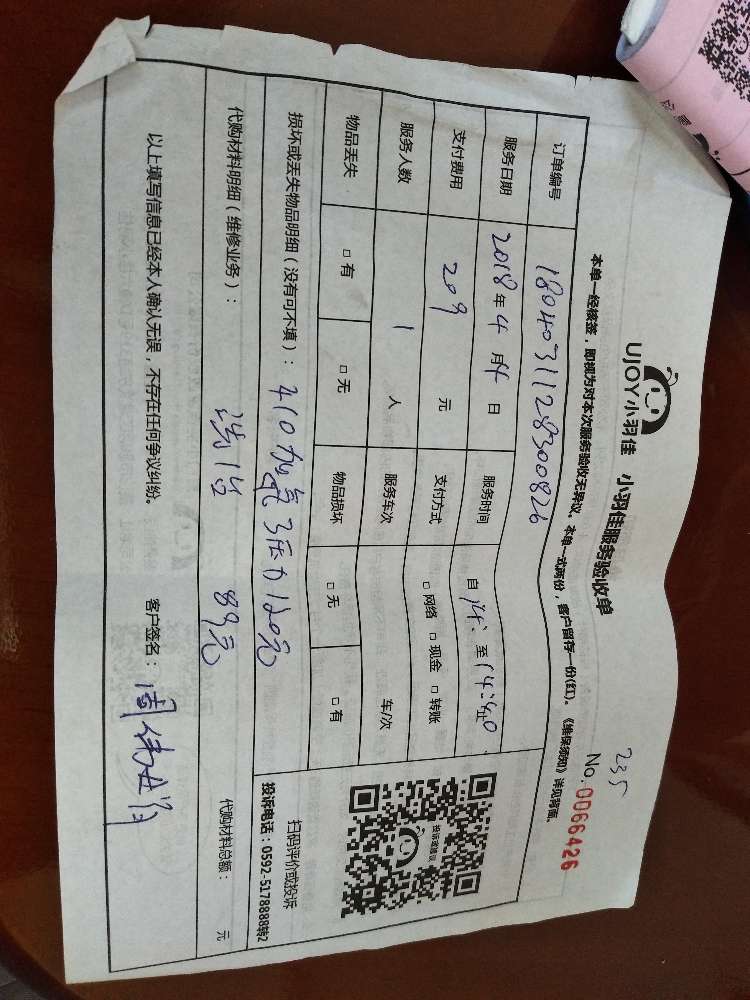 235
No.0066426
UJOY小羽佳 小羽佳服务验收单
本单一经核签，即视为对本次服务验收无异议。本单一式两份，客户留存一份(红)。《维保须知》详见背面。
订单编号 1804031128300826
服务日期 2018年4月4日 服务时间 自14: 至14:40
支付费用 209 元 支付方式 □网络 □现金 □转账
服务人数 1 人 服务车次 车/次
物品丢失 □有 □无 物品损坏 □无 □有
投诉或建议
扫码评价或投诉
投诉电话：0592-5178888转2
损坏或丢失物品明细（没有可不填）： 410加氟 3压力 120元
代购材料明细（维修业务）： 代购材料总额： 元
89元
以上填写信息已经本人确认无误，不存在任何争议纠纷。 客户签名：